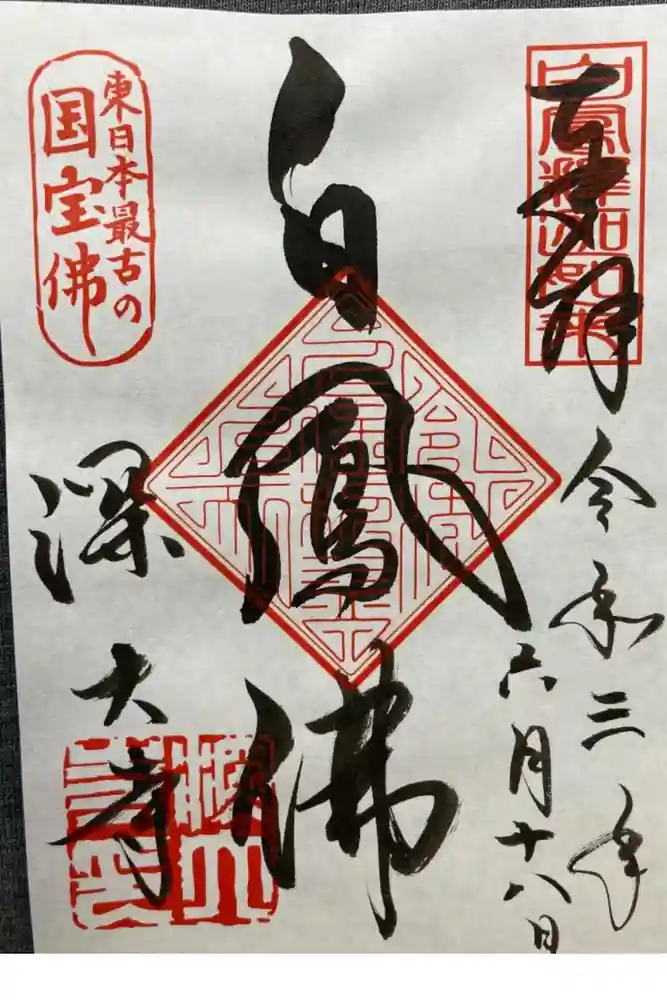 奉拝
白鳳釈迦如来
令和三年
六月十八日
白鳳佛
東日本最古の
国宝佛
深大寺